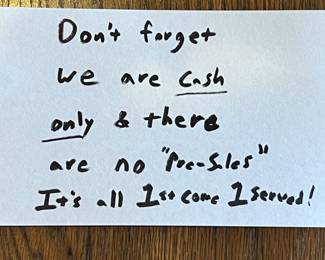 Don't forget
we are cash
only & there
are no "Pre-Sales"
It's all 1st come 1 served!